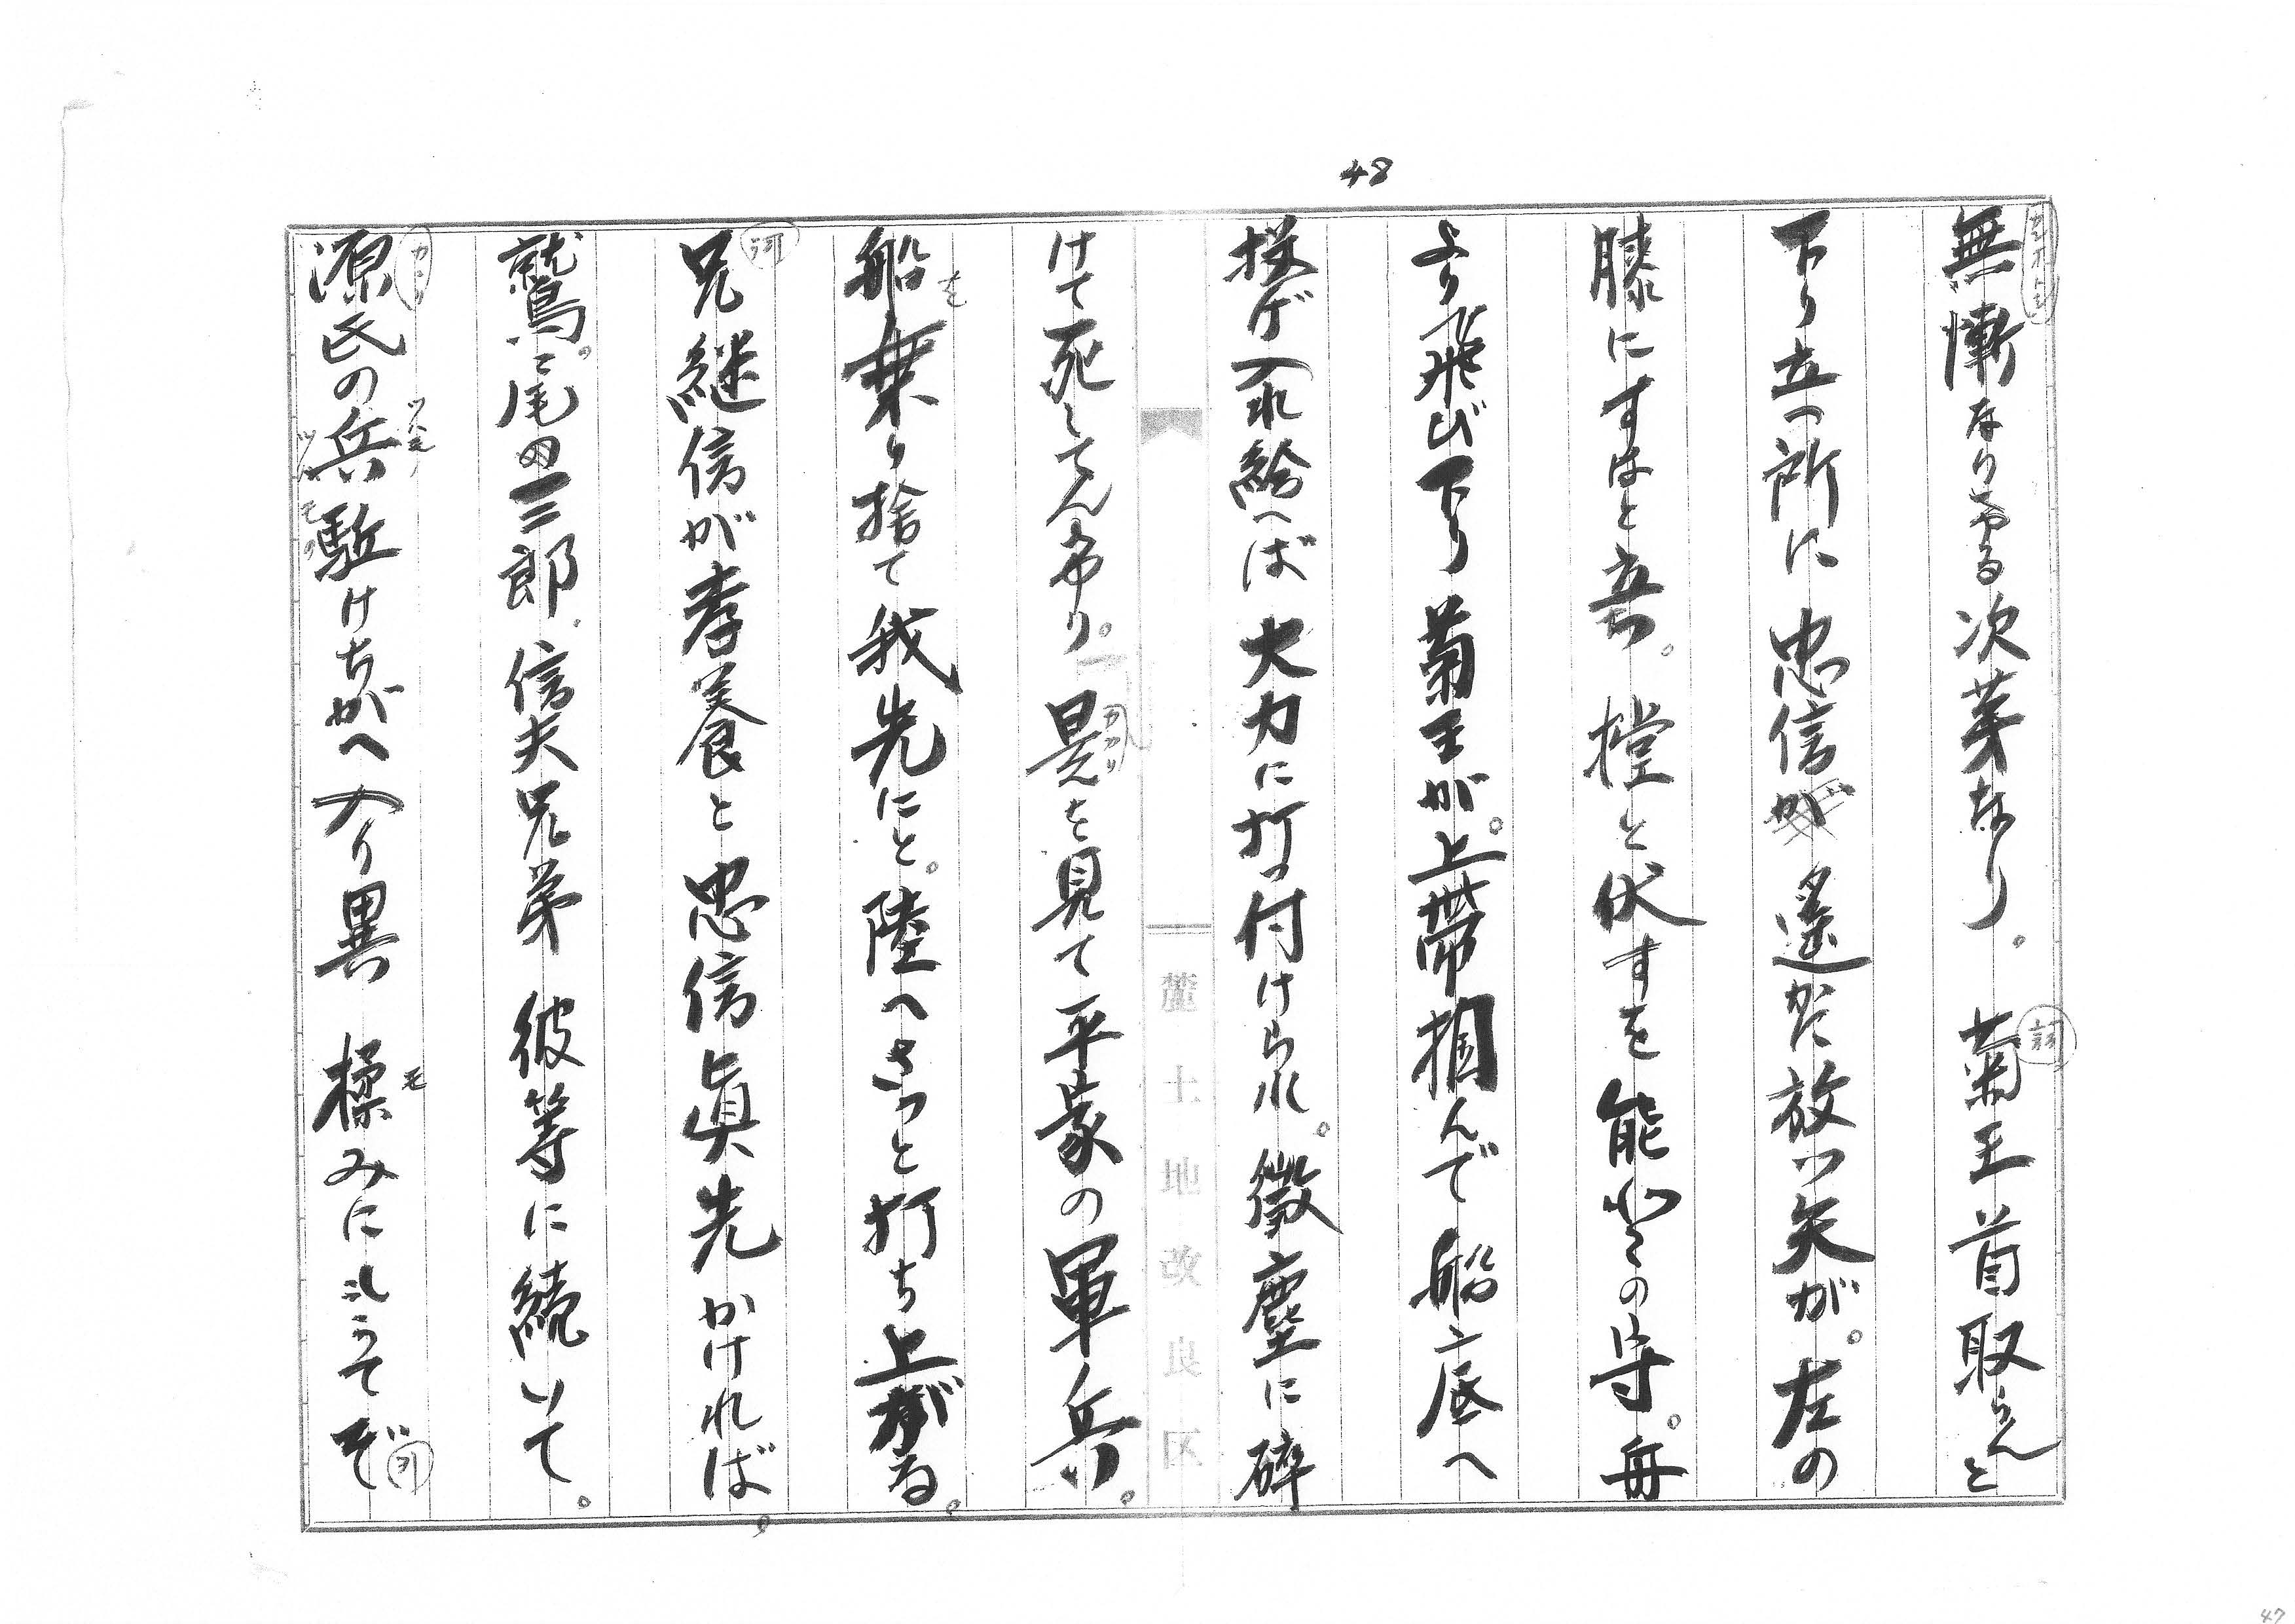 48
無慚なりける次第なり。菊王首取らんと
下り立つ所に忠信が遙かに放つ矢が。左の
膝にすはと立つ。撞と伏すを能登の守。舟
より飛び下り菊王が。上帯掴んで船底へ
投げ入れ給へば大力に打つ付けられ。微塵に砕
けて死してんげり。
カカリ
是を見て平家の軍兵。
船を乗り捨て我先にと。陸へさつと打ち上がる。
兄継信が孝養と忠信眞先かければ。
鷲。尾の三郎。信夫兄弟彼等に続いて。
源氏の兵駈けちがへ入り異 揉みに
モ
麓土地改良区
47